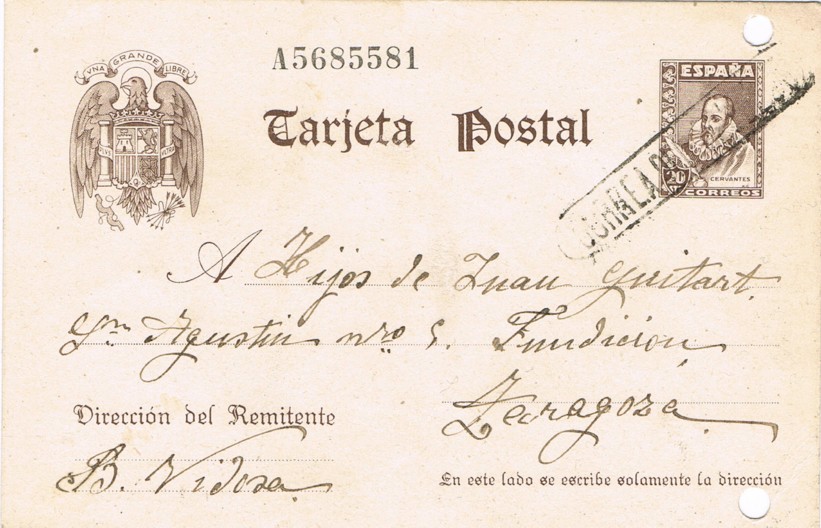 VNA GRANDE LIBRE
A5685581
Tarjeta Postal
ESPAÑA
20
CERVANTES
CORREOS
A Hijos de Juan Guitart.
Sn Agustin nro 5. Fundicion
Zaragoza
Dirección del Remitente
B. Vidosa
En este lado se escribe solamente la dirección